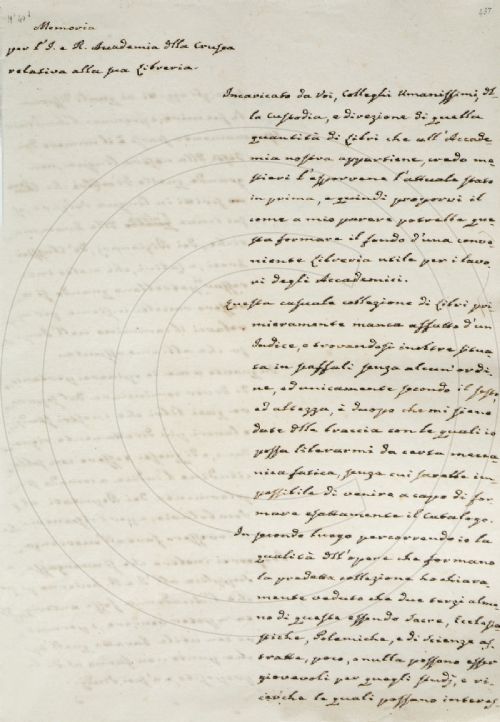 437
Memoria
per l'I. e R. Accademia dlla Crusca
relativa alla sua Libreria.
Incaricato da Voi, Colleghi Umanissimi, dl
la custodia, e direzione di quella
quantità di Libri che all'Accade-
mia nostra appartiene, credo me-
stieri l'esporvene l'attuale stato
in prima, e quindi proporvi il
come a mio parere potrebbe que-
sta formare il fondo d'una conve-
niente Libreria utile per i lavo-
ri degli Accademici.
Questa casuale collezione di Libri pri
mieramente manca affatto d'un
Indice, e trovandosi inoltre situa-
ta in scaffali senza alcun ordi-
ne, ed unicamente secondo il sesto
ed altezza, è duopo che mi sieno
date dlle braccia con le quali io
possa liberarmi da certa mecca-
nica fatica, senza cui sarebbe im-
possibile di venire a capo di for-
mare esattamente il Catalogo.
In secondo luogo percorrendo io la
qualità dll'opere che formano
la predetta collezione ho chiara-
mente veduto che due terzi alme-
no di queste essendo Sacre, Ecclesia-
stiche, Polemiche, e di Scienze as-
tratte, poco, o nulla possono esser
giovevoli per quegli studj, e ri-
cerche le quali possono interes-